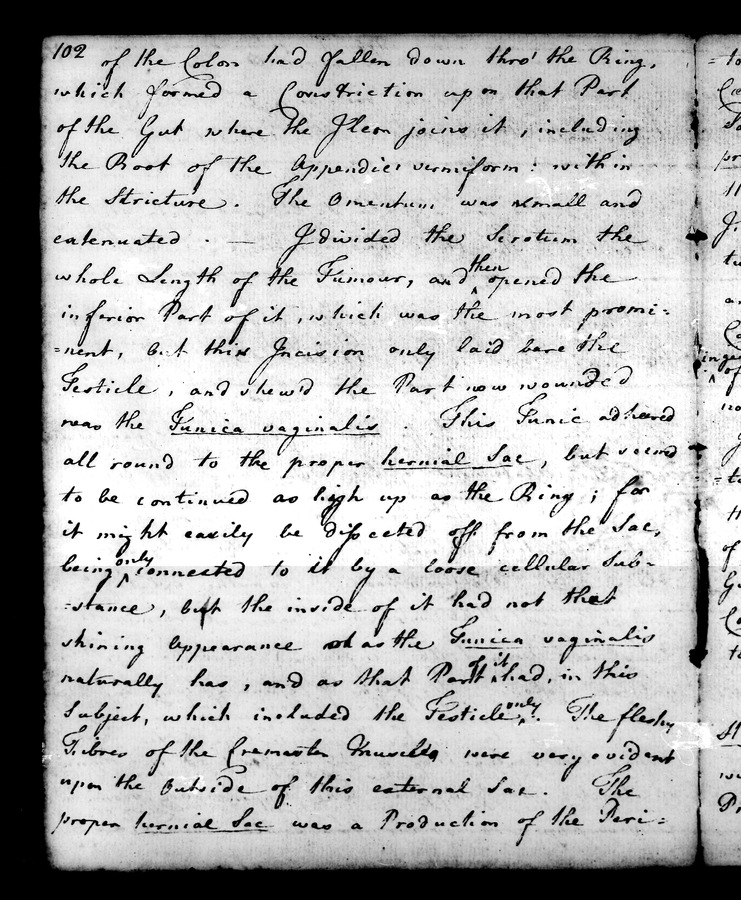 102 of the Colon had fallen down thro' the Ring,
which formed a Constriction upon that Part
of the Gut where the Ileon joins it, including
the Root of the Appendic: vermiform: within
the Stricture. The Omentum was small and
extenuated. — I divided the Scrotum the
whole Length of the Tumour, and then opened the
inferior Part of it, which was the most promi=
=nent, but this Incision only laid bare the
Testicle, and shew'd the Part now wounded
was the Tunica vaginalis. This Tunic adhered
all round to the proper hernial Sac, but seemed
to be continued as high up as the Ring; for
it might easily be dissected off from the Sac,
being only connected to it by a loose cellular Sub-
=stance, but the inside of it had not that
shining Appearance as the Tunica vaginalis
naturally has, and as that Part of it had, in this
Subject, which included the Testicle only. The fleshy
Fibres of the Cremaster Muscle were very evident
upon the Outside of this external Sac. The
proper hernial Sac was a Production of the Peri=